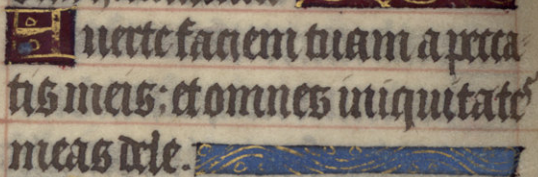 Auerte faciem tuam a pecca
tis meis: et omnes iniquitates
meas dele.